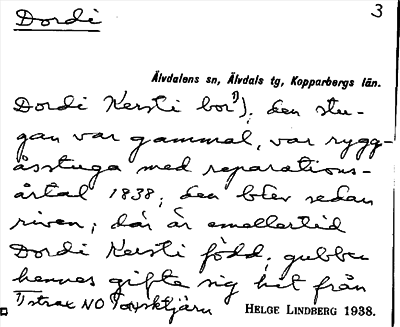 Dordi
3
Älvdalens sn, Älvdals tg, Kopparbergs län.
Dordi Kersti bor¹), den stu-
gan var gammal, var rygg-
åsstuga med reparations-
årtal 1838; den blev sedan
riven; där är emellertid
Dordi Kersti född; gubben
hennes gifte sig hit från
1) strax NO
HELGE LINDBERG 1938.